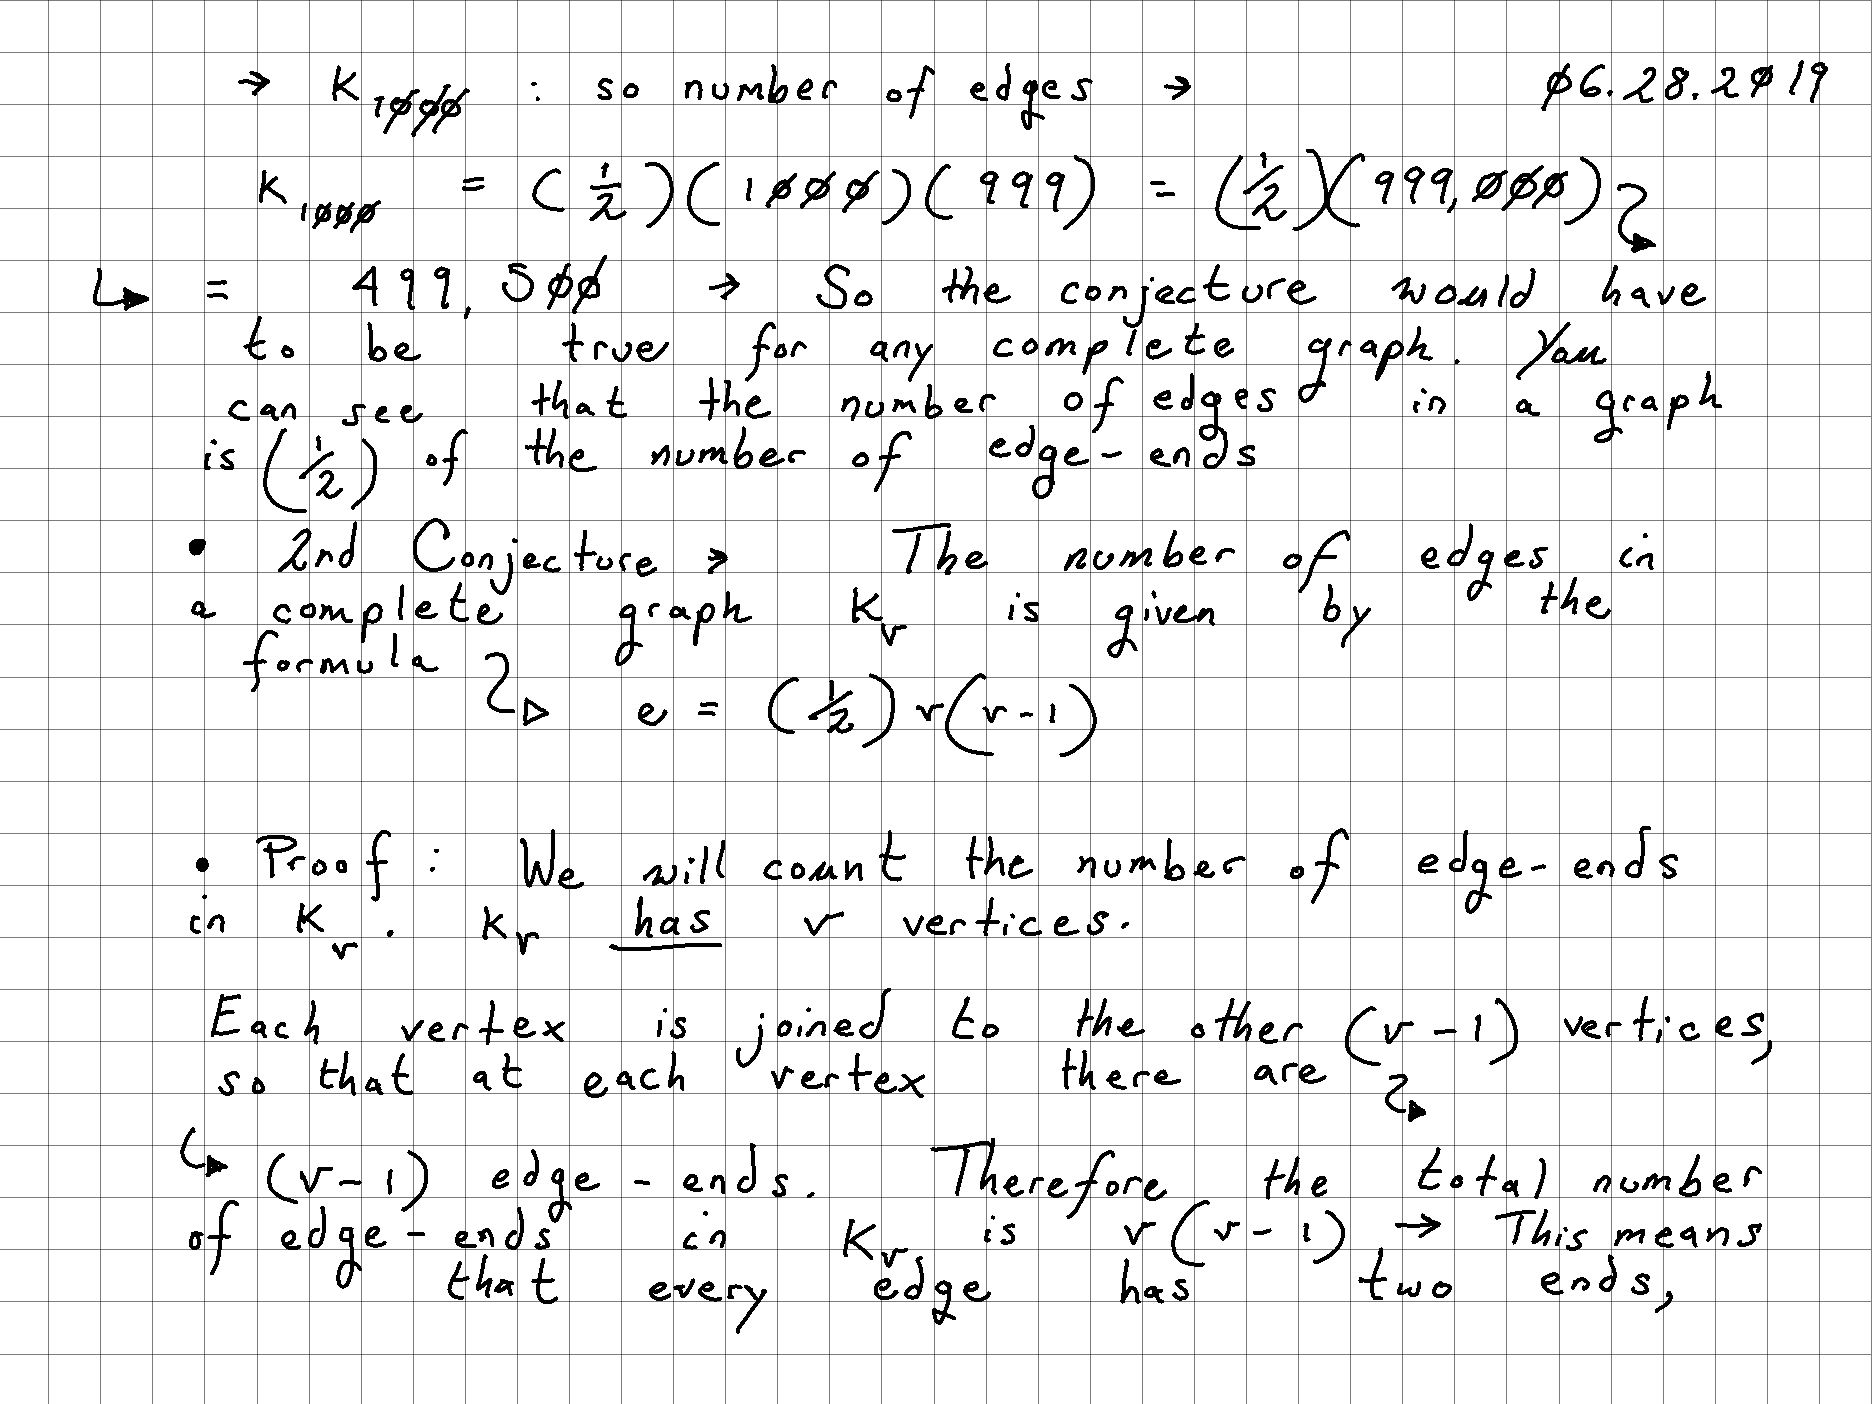 → K₁₀₀₀ : so number of edges → 06.28.2019
K₁₀₀₀ = (1/2)(1000)(999) = (1/2)(999,000)
= 499,500 → So the conjecture would have
to be true for any complete graph. You
can see that the number of edges in a graph
is (1/2) of the number of edge-ends
• 2nd Conjecture → The number of edges in
a complete graph Kᵥ is given by the
formula
e = (1/2) v(v-1)
• Proof : We will count the number of edge-ends
in Kᵥ. Kᵥ has v vertices.
Each vertex is joined to the other (v-1) vertices,
so that at each vertex there are
(v-1) edge-ends. Therefore the total number
of edge-ends in Kᵥ is v(v-1) → This means
that every edge has two ends,